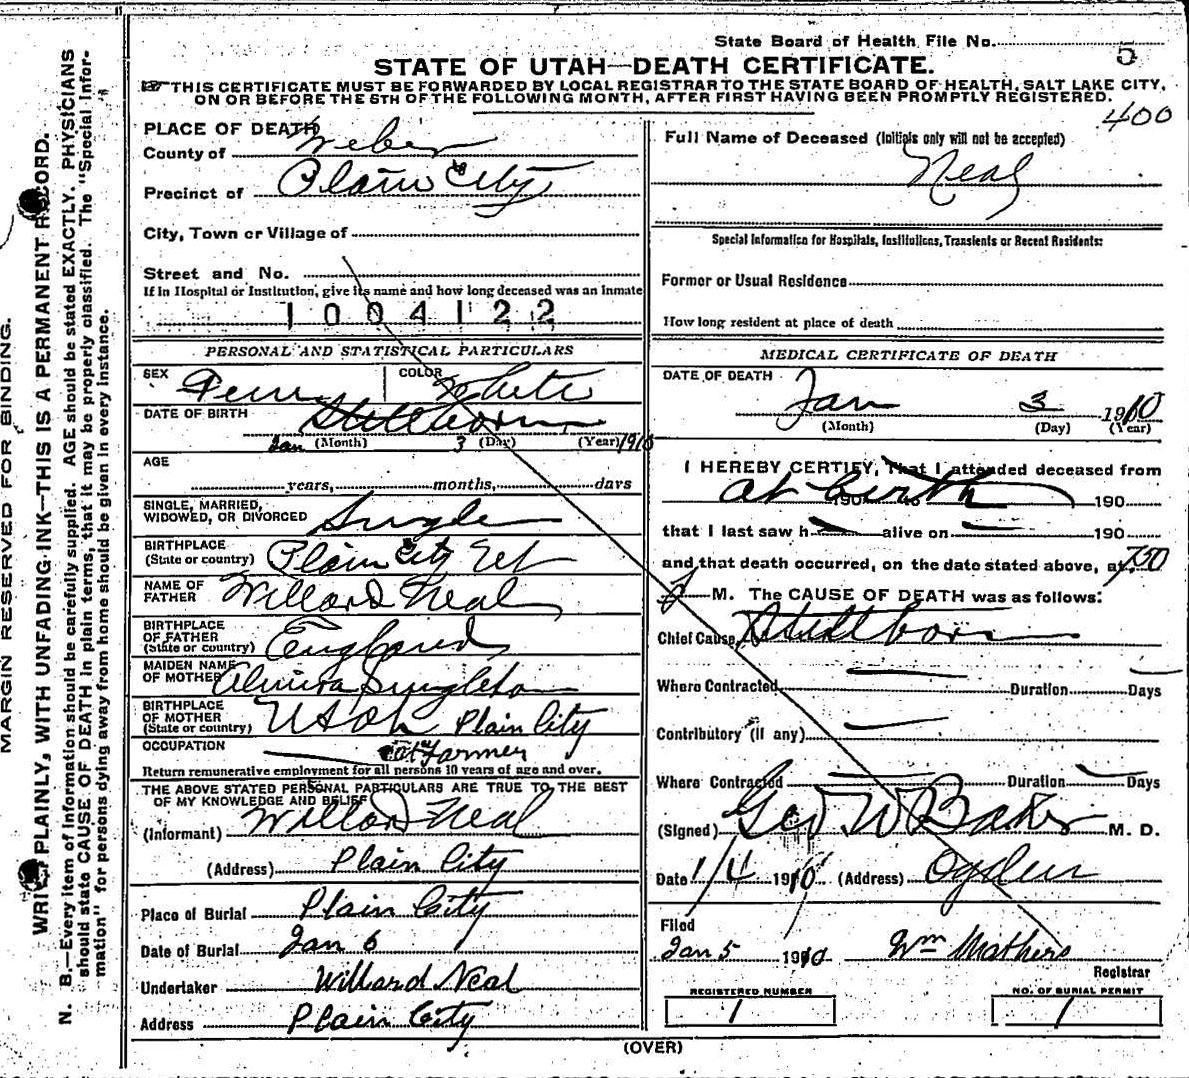 State Board of Health File No. 5
STATE OF UTAH—DEATH CERTIFICATE.
THIS CERTIFICATE MUST BE FORWARDED BY LOCAL REGISTRAR TO THE STATE BOARD OF HEALTH, SALT LAKE CITY,
ON OR BEFORE THE 5TH OF THE FOLLOWING MONTH, AFTER FIRST HAVING BEEN PROMPTLY REGISTERED.
400
MARGIN RESERVED FOR BINDING.
WRITE PLAINLY, WITH UNFADING INK—THIS IS A PERMANENT RECORD.
N. B.—Every item of information should be carefully supplied. AGE should be stated EXACTLY. PHYSICIANS
should state CAUSE OF DEATH in plain terms, that it may be properly classified. The "Special Infor-
mation" for persons dying away from home should be given in every instance.
PLACE OF DEATH
County of Weber
Precinct of Plain City
City, Town or Village of
Street and No.
If in Hospital or Institution, give its name and how long deceased was an inmate
1004122
PERSONAL AND STATISTICAL PARTICULARS
SEX Fem COLOR White
DATE OF BIRTH Stillborn
Jan (Month) 3 (Day) (Year) 1910
AGE
years, months, days
SINGLE, MARRIED,
WIDOWED, OR DIVORCED Single
BIRTHPLACE
(State or country) Plain City Ut
NAME OF
FATHER Willard Neal
BIRTHPLACE
OF FATHER
(State or country) England
MAIDEN NAME
OF MOTHER Almira Singleton
BIRTHPLACE
OF MOTHER
(State or country) Utah Plain City
OCCUPATION Farmer
Return remunerative employment for all persons 10 years of age and over.
THE ABOVE STATED PERSONAL PARTICULARS ARE TRUE TO THE BEST
OF MY KNOWLEDGE AND BELIEF
(Informant) Willard Neal
(Address) Plain City
Place of Burial Plain City
Date of Burial Jan 6
Undertaker Willard Neal
Address Plain City
Full Name of Deceased (Initials only will not be accepted)
Neal
Special Information for Hospitals, Institutions, Transients or Recent Residents:
Former or Usual Residence
How long resident at place of death
MEDICAL CERTIFICATE OF DEATH
DATE OF DEATH
Jan 3 1910
(Month) (Day) (Year)
I HEREBY CERTIFY, That I attended deceased from
at birth 190 to 190
that I last saw h alive on 190
and that death occurred, on the date stated above, at 7:50
M. The CAUSE OF DEATH was as follows:
Chief Cause Stillborn
Where Contracted Duration Days
Contributory (if any)
Where Contracted Duration Days
(Signed) Geo W Baker M. D.
Date 1/4 1910 (Address) Ogden
Filed
Jan 5 1910 Wm Mathers
Registrar
REGISTERED NUMBER
1
NO. OF BURIAL PERMIT
1
(OVER)